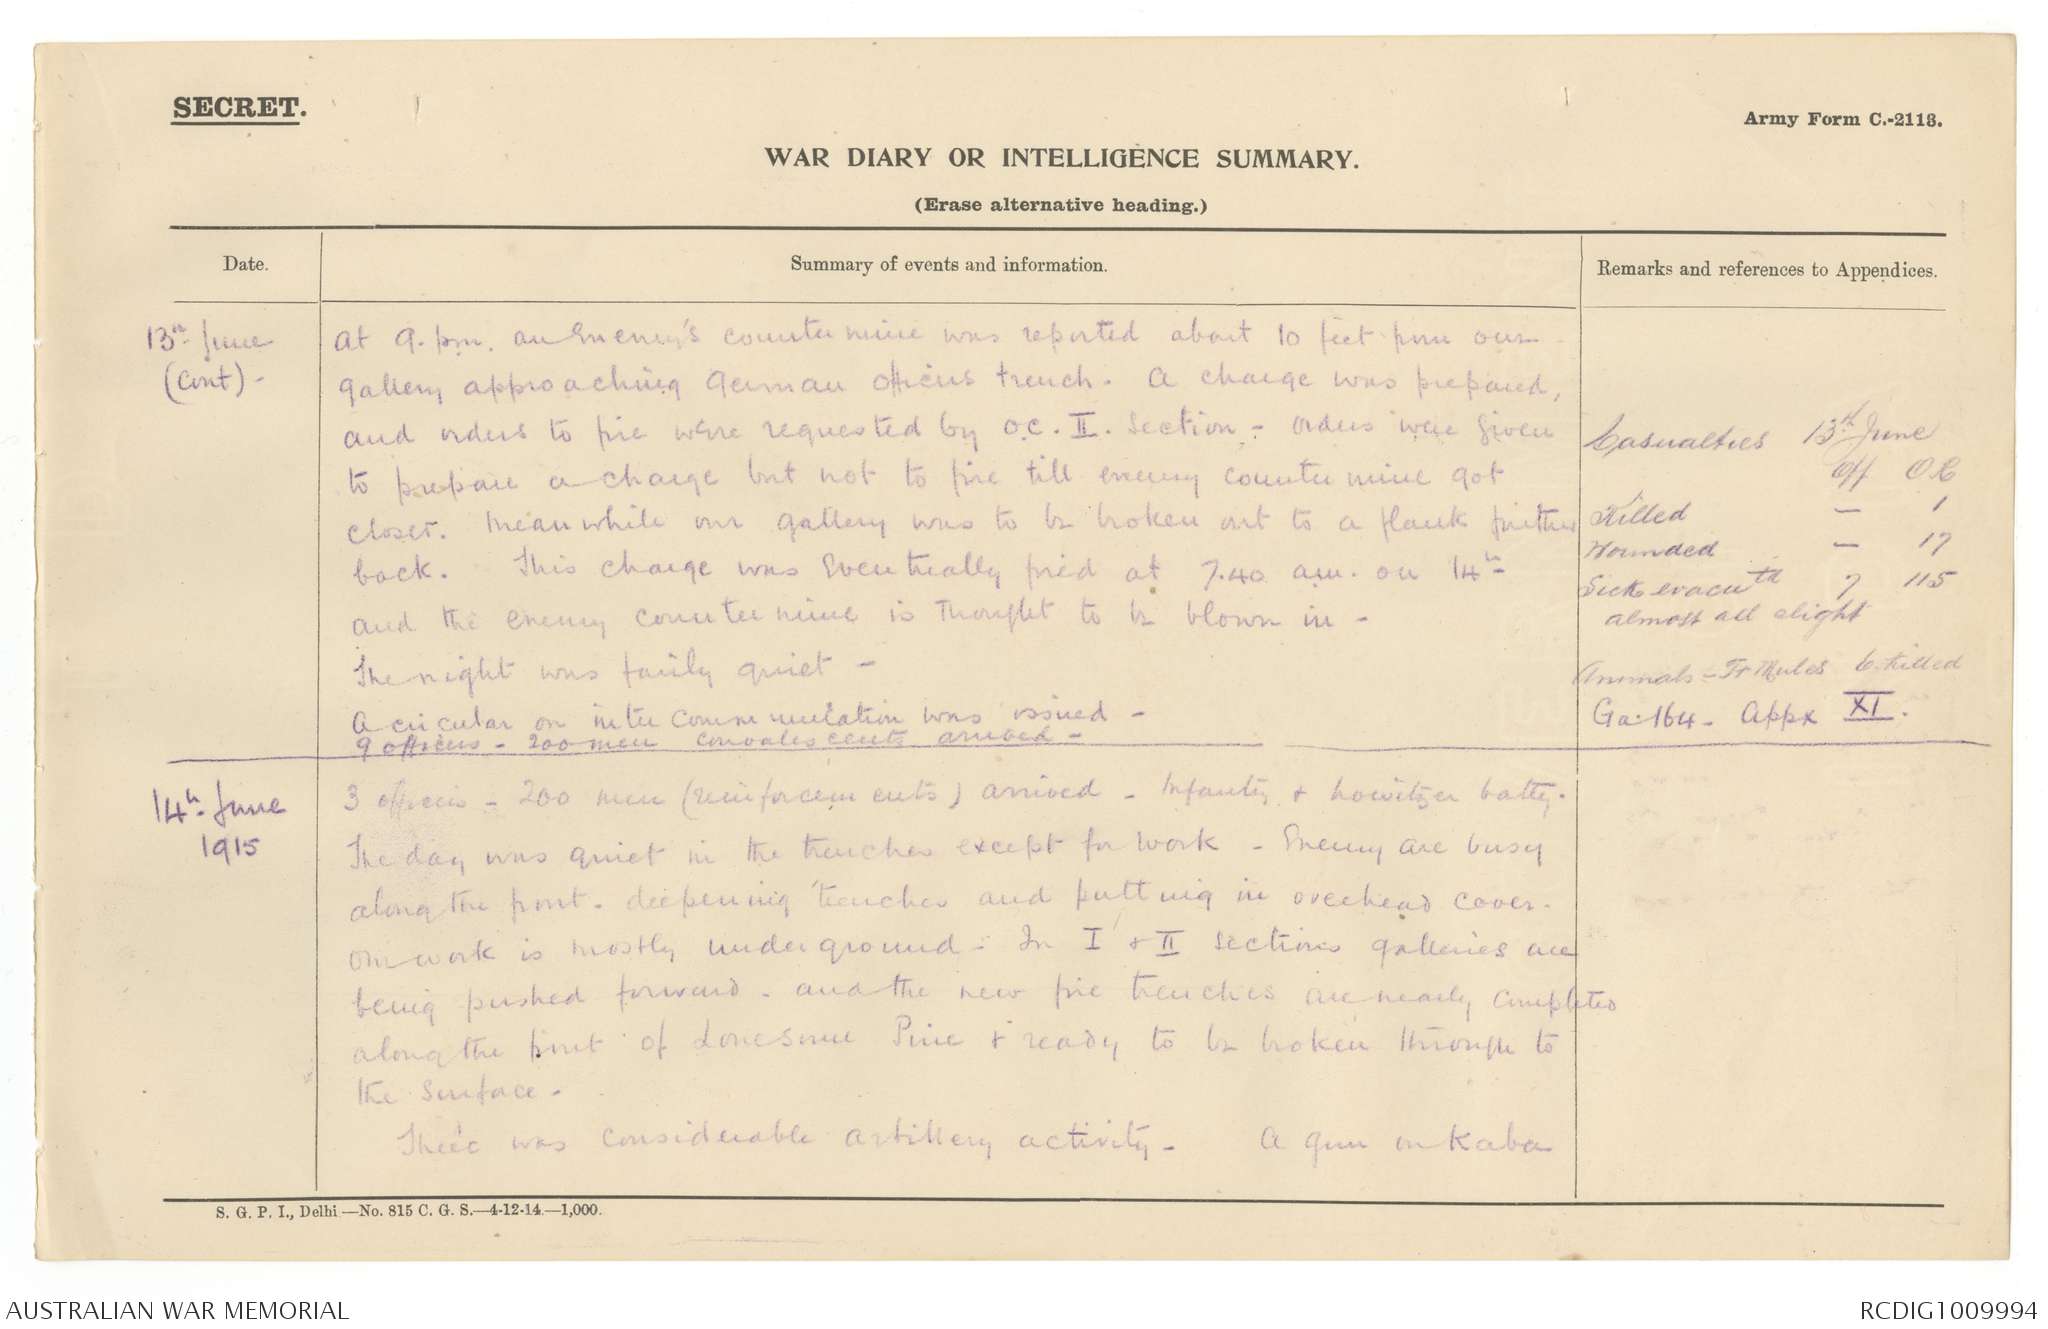 SECRET.
Army Form C.-2118.
WAR DIARY OR INTELLIGENCE SUMMARY.
(Erase alternative heading.)
Date.
Summary of events and information.
Remarks and references to Appendices.
13th June
(Cont) -
At 9. pm. an Enemy's countermine was reported about 10 feet from our
gallery approaching German Officers trench. A charge was prepared,
and orders to fire were requested by O.C. II. Section - orders were given
to prepare a charge but not to fire till enemy countermine got
closer. Meanwhile our gallery was to be broken out to a flank further
back. This charge was eventually fired at 7.40 am. on 14th -
and the enemy countermine is thought to be blown in -
The night was fairly quiet -
A circular on intercommunication was issued -
9 officers - 200 men convalescents arrived -
Casualties 13th June
Off O.R
Killed - 1
Wounded - 17
Sick evacutd 7 115
almost all slight
Animals - Tr Mules 6 killed
Ga. 164 - Appx XI.
14th June
1915
3 officers - 200 men (reinforcements) arrived - Infantry & howitzer batty.
The day was quiet in the trenches except for work - Enemy are busy
along the front. deepening trenches and putting in overhead cover.
Our work is mostly underground - In I & II Sections galleries are
being pushed forward - and the new fire trenches are nearly completed
along the front of Lonesome Pine & ready to be broken through to
the surface -
There was considerable artillery activity - A gun on Kaba
S. G. P. I., Delhi—No. 815 C. G. S.—4-12-14—1,000.
AUSTRALIAN WAR MEMORIAL
RCDIG1009994